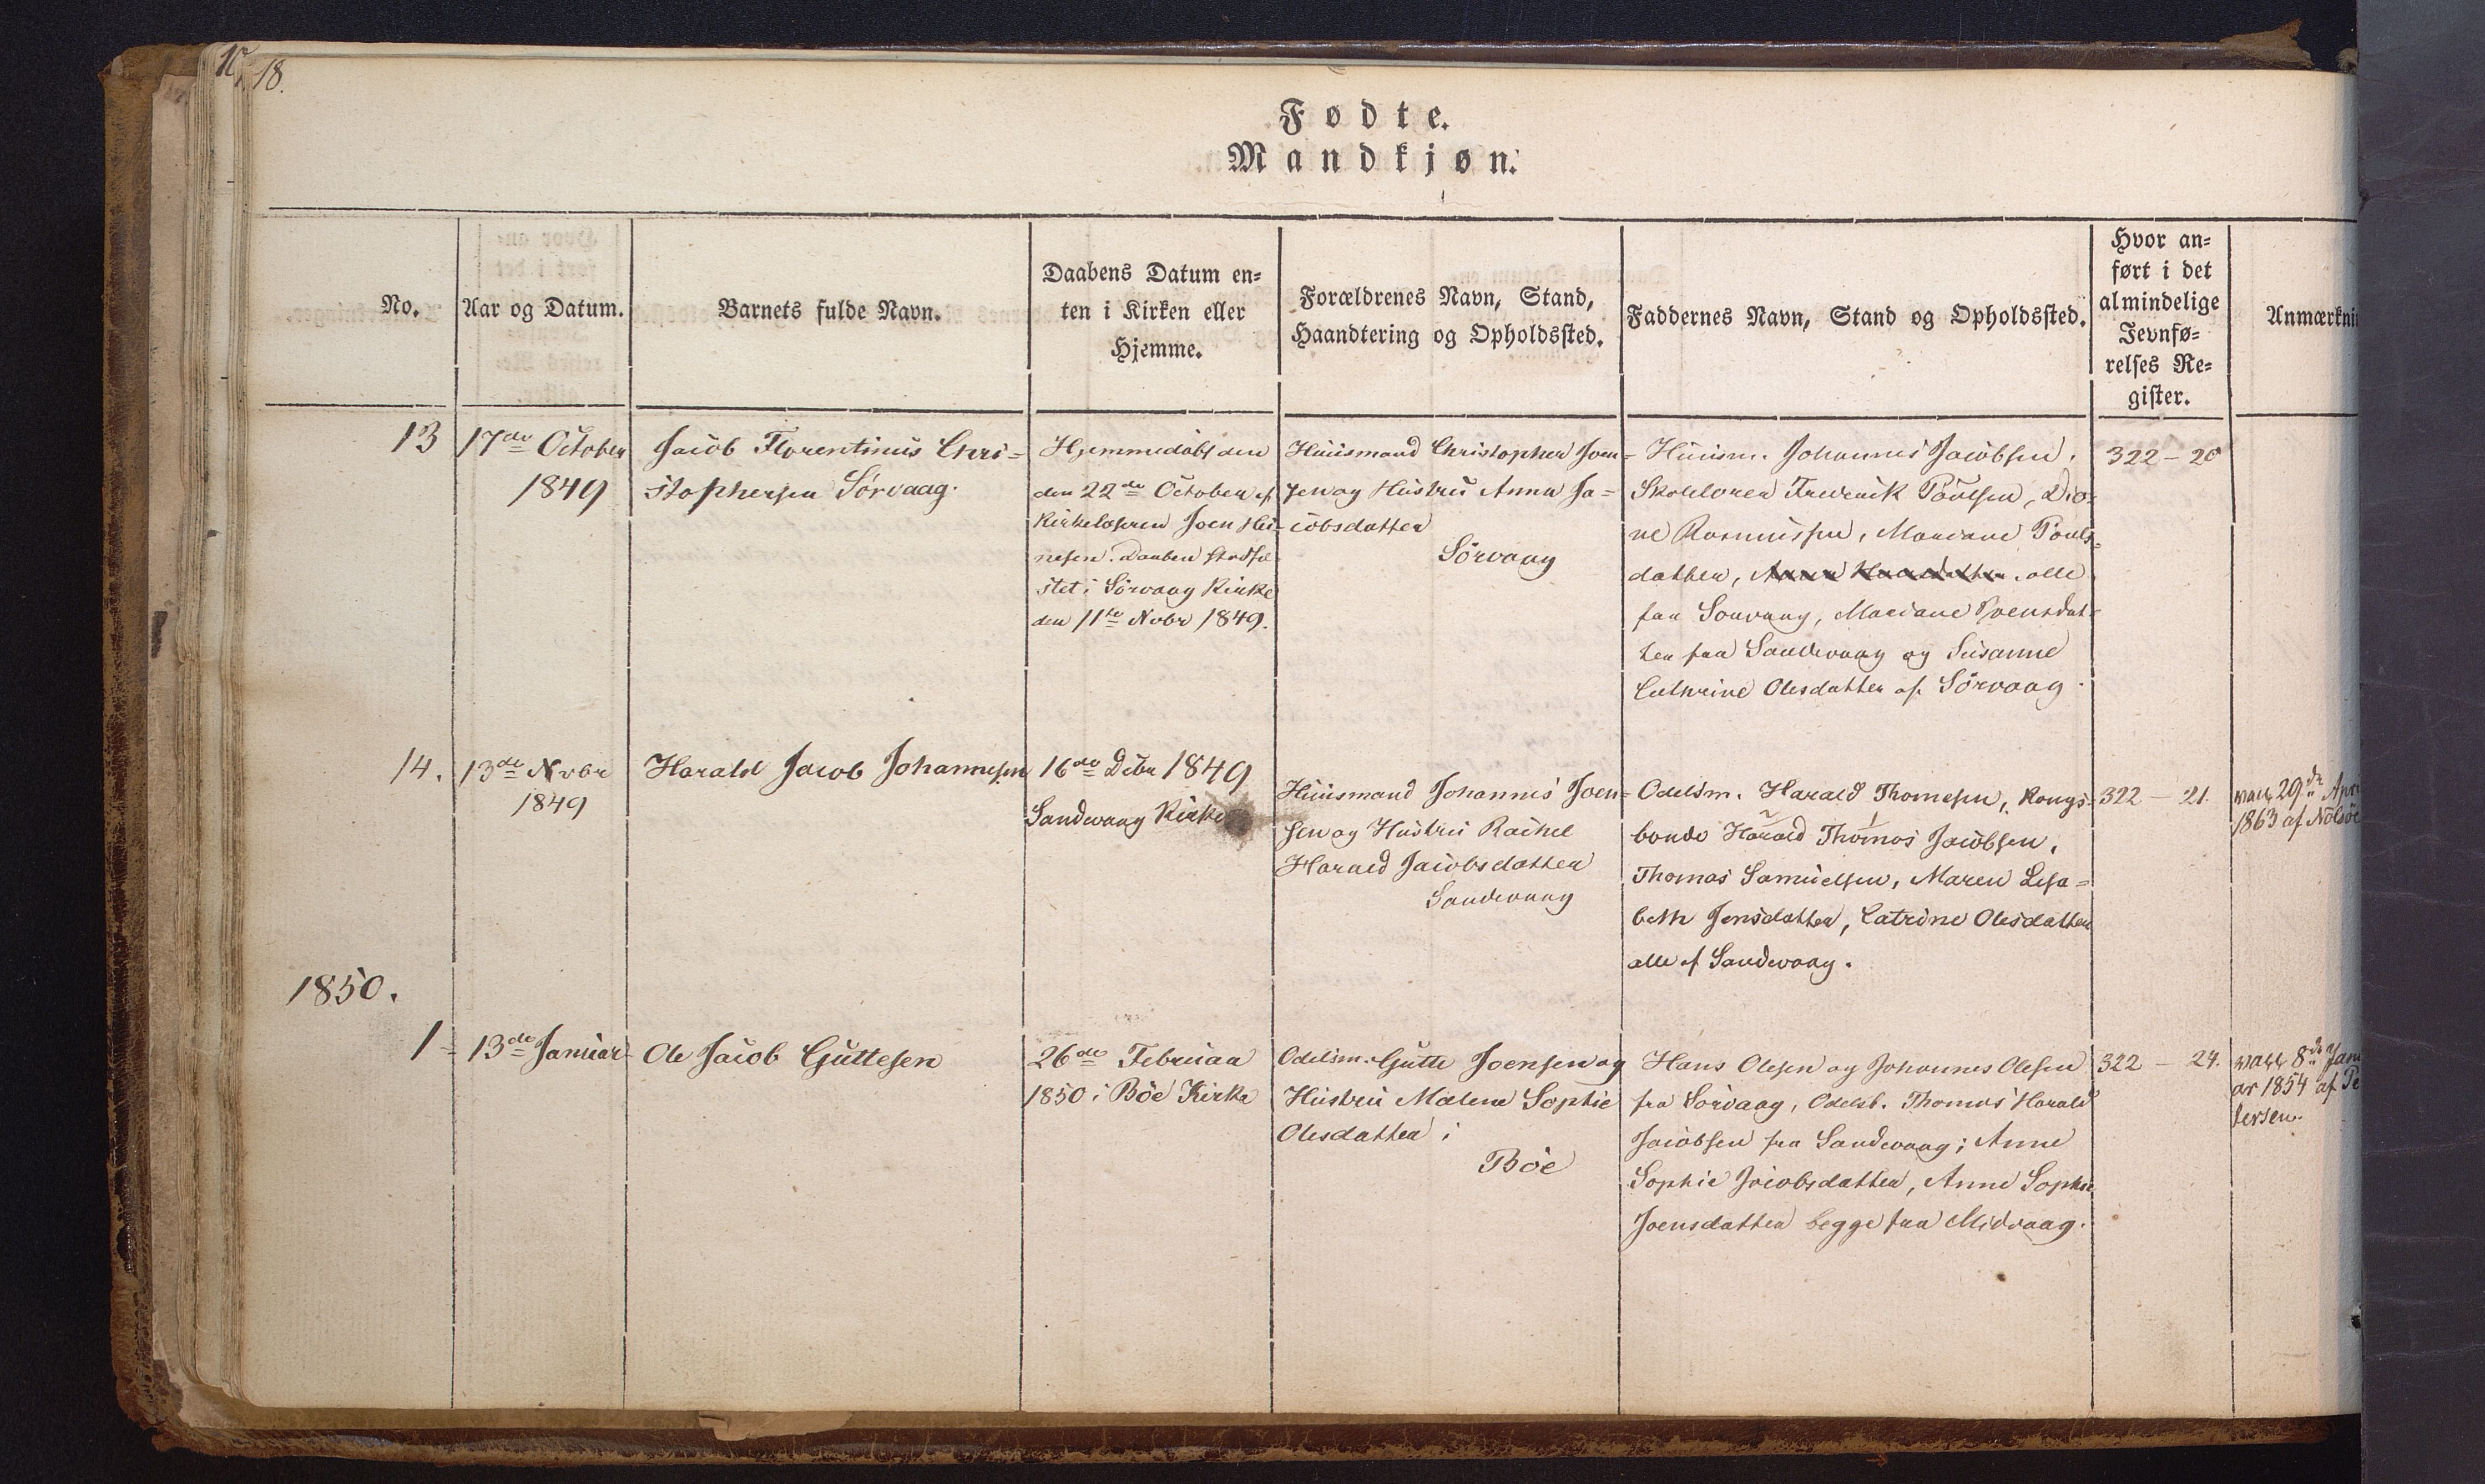 18.
Fødte.
Mandkjøn.
No.
Aar og Datum.
Barnets fulde Navn.
Daabens Datum en-
ten i Kirken eller
Hjemme.
Forældrenes Navn, Stand,
Haandtering og Opholdssted.
Faddernes Navn, Stand og Opholdssted.
Hvor an-
ført i det
almindelige
Jevnfø-
relses Re-
gister.
Anmærkni
13
17de October
1849
Jacob Florentinus Chri-
stophersen Sörvaag.
Hjemmedöbt den
den 22de October af
Kirkelæseren Joen Hei-
nesen. Daaben stadfæ
stet i Sörvaag Kirke
den 11te Nobr 1849.
Huusmand Christopher Joen-
sen og Hustru Anna Ja-
cobsdatter
Sörvaag
Huusm. Johannes Jacobsen,
Skolelærer Frederik Poulsen, Dio-
ne Rasmussen, Mariane Pouls-
datter, alle
fra Sorvaag, Mariane Joensdat-
ter fra Sandevaag og Susanne
Cathrine Olesdatter af Sörvaag.
322 - 20
14.
13de Nvbr
1849
Harald Jacob Johannesen
16de Dcbr 1849
Sandevaag Kirke
Huusmand Johannes Joen-
sen og Hustru Rachel
Harald Jacobsdatter
Sandevaag
Odelsm. Harald Thomesen, Kongs-
bonde Harald Thomas Jacobsen,
Thomas Samuelsen, Maren Lisa-
beth Jensdatter, Catrine Olesdatter
alle af Sandevaag.
322 - 21.
vacc 29de Apri
1863 af Nolsöe
1850.
1
13de Januar
Ole Jacob Guttesen
26de Februar
1850 i Böe Kirke
Odelsm. Gutte Joensen og
Hustru Malene Sophie
Olesdatter i
Böe
Hans Olesen og Johannes Olesen
fra Sörvaag, Odelsb. Thomas Harald
Jacobsen fra Sandevaag; Anne
Sophie Jacobsdatter, Anne Sophie
Joensdatter begge fra Midvaag.
322 - 24.
vacc 8de Janu
ar 1854 af Pe
tersen.